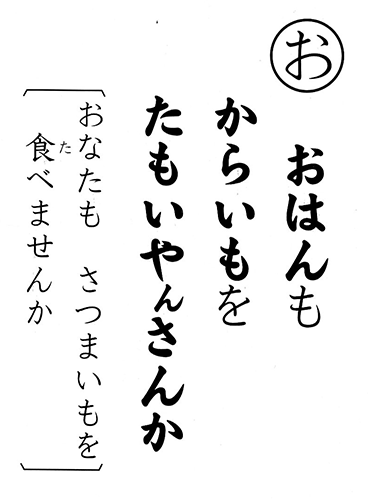 お
おはんも
からいもを
たもいやんさんか
〔おなたも　さつまいもを
食べませんか〕
た